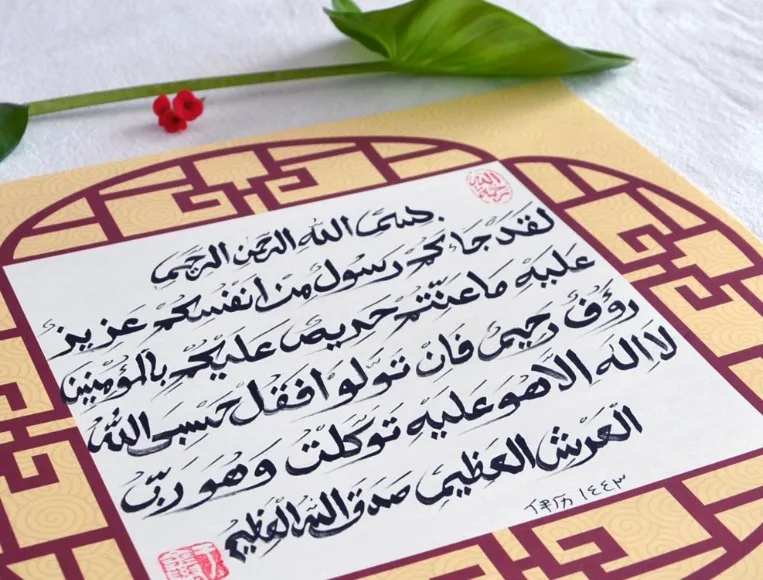 بسم الله الرحمن الرحيم
لقد جاءكم رسول من انفسكم عزيز
عليه ما عنتم حريص عليكم بالمؤمنين
رؤف رحيم فان تولوا فقل حسبي الله
لا اله الا هو عليه توكلت وهو رب
العرش العظيم صدق الله العظيم
伊历 ١٤٤٣